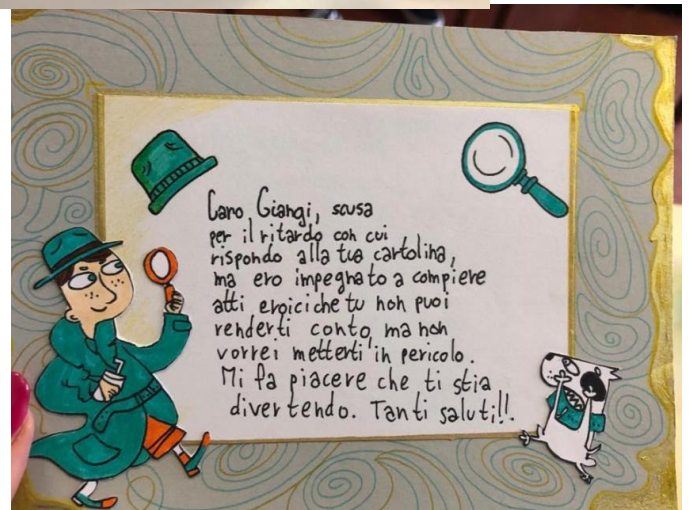 Caro Giangi, scusa
per il ritardo con cui
rispondo alla tua cartolina,
ma ero impegnato a compiere
atti eroici che tu non puoi
renderti conto, ma non
vorrei metterti in pericolo.
Mi fa piacere che ti stia
divertendo. Tanti saluti!!.